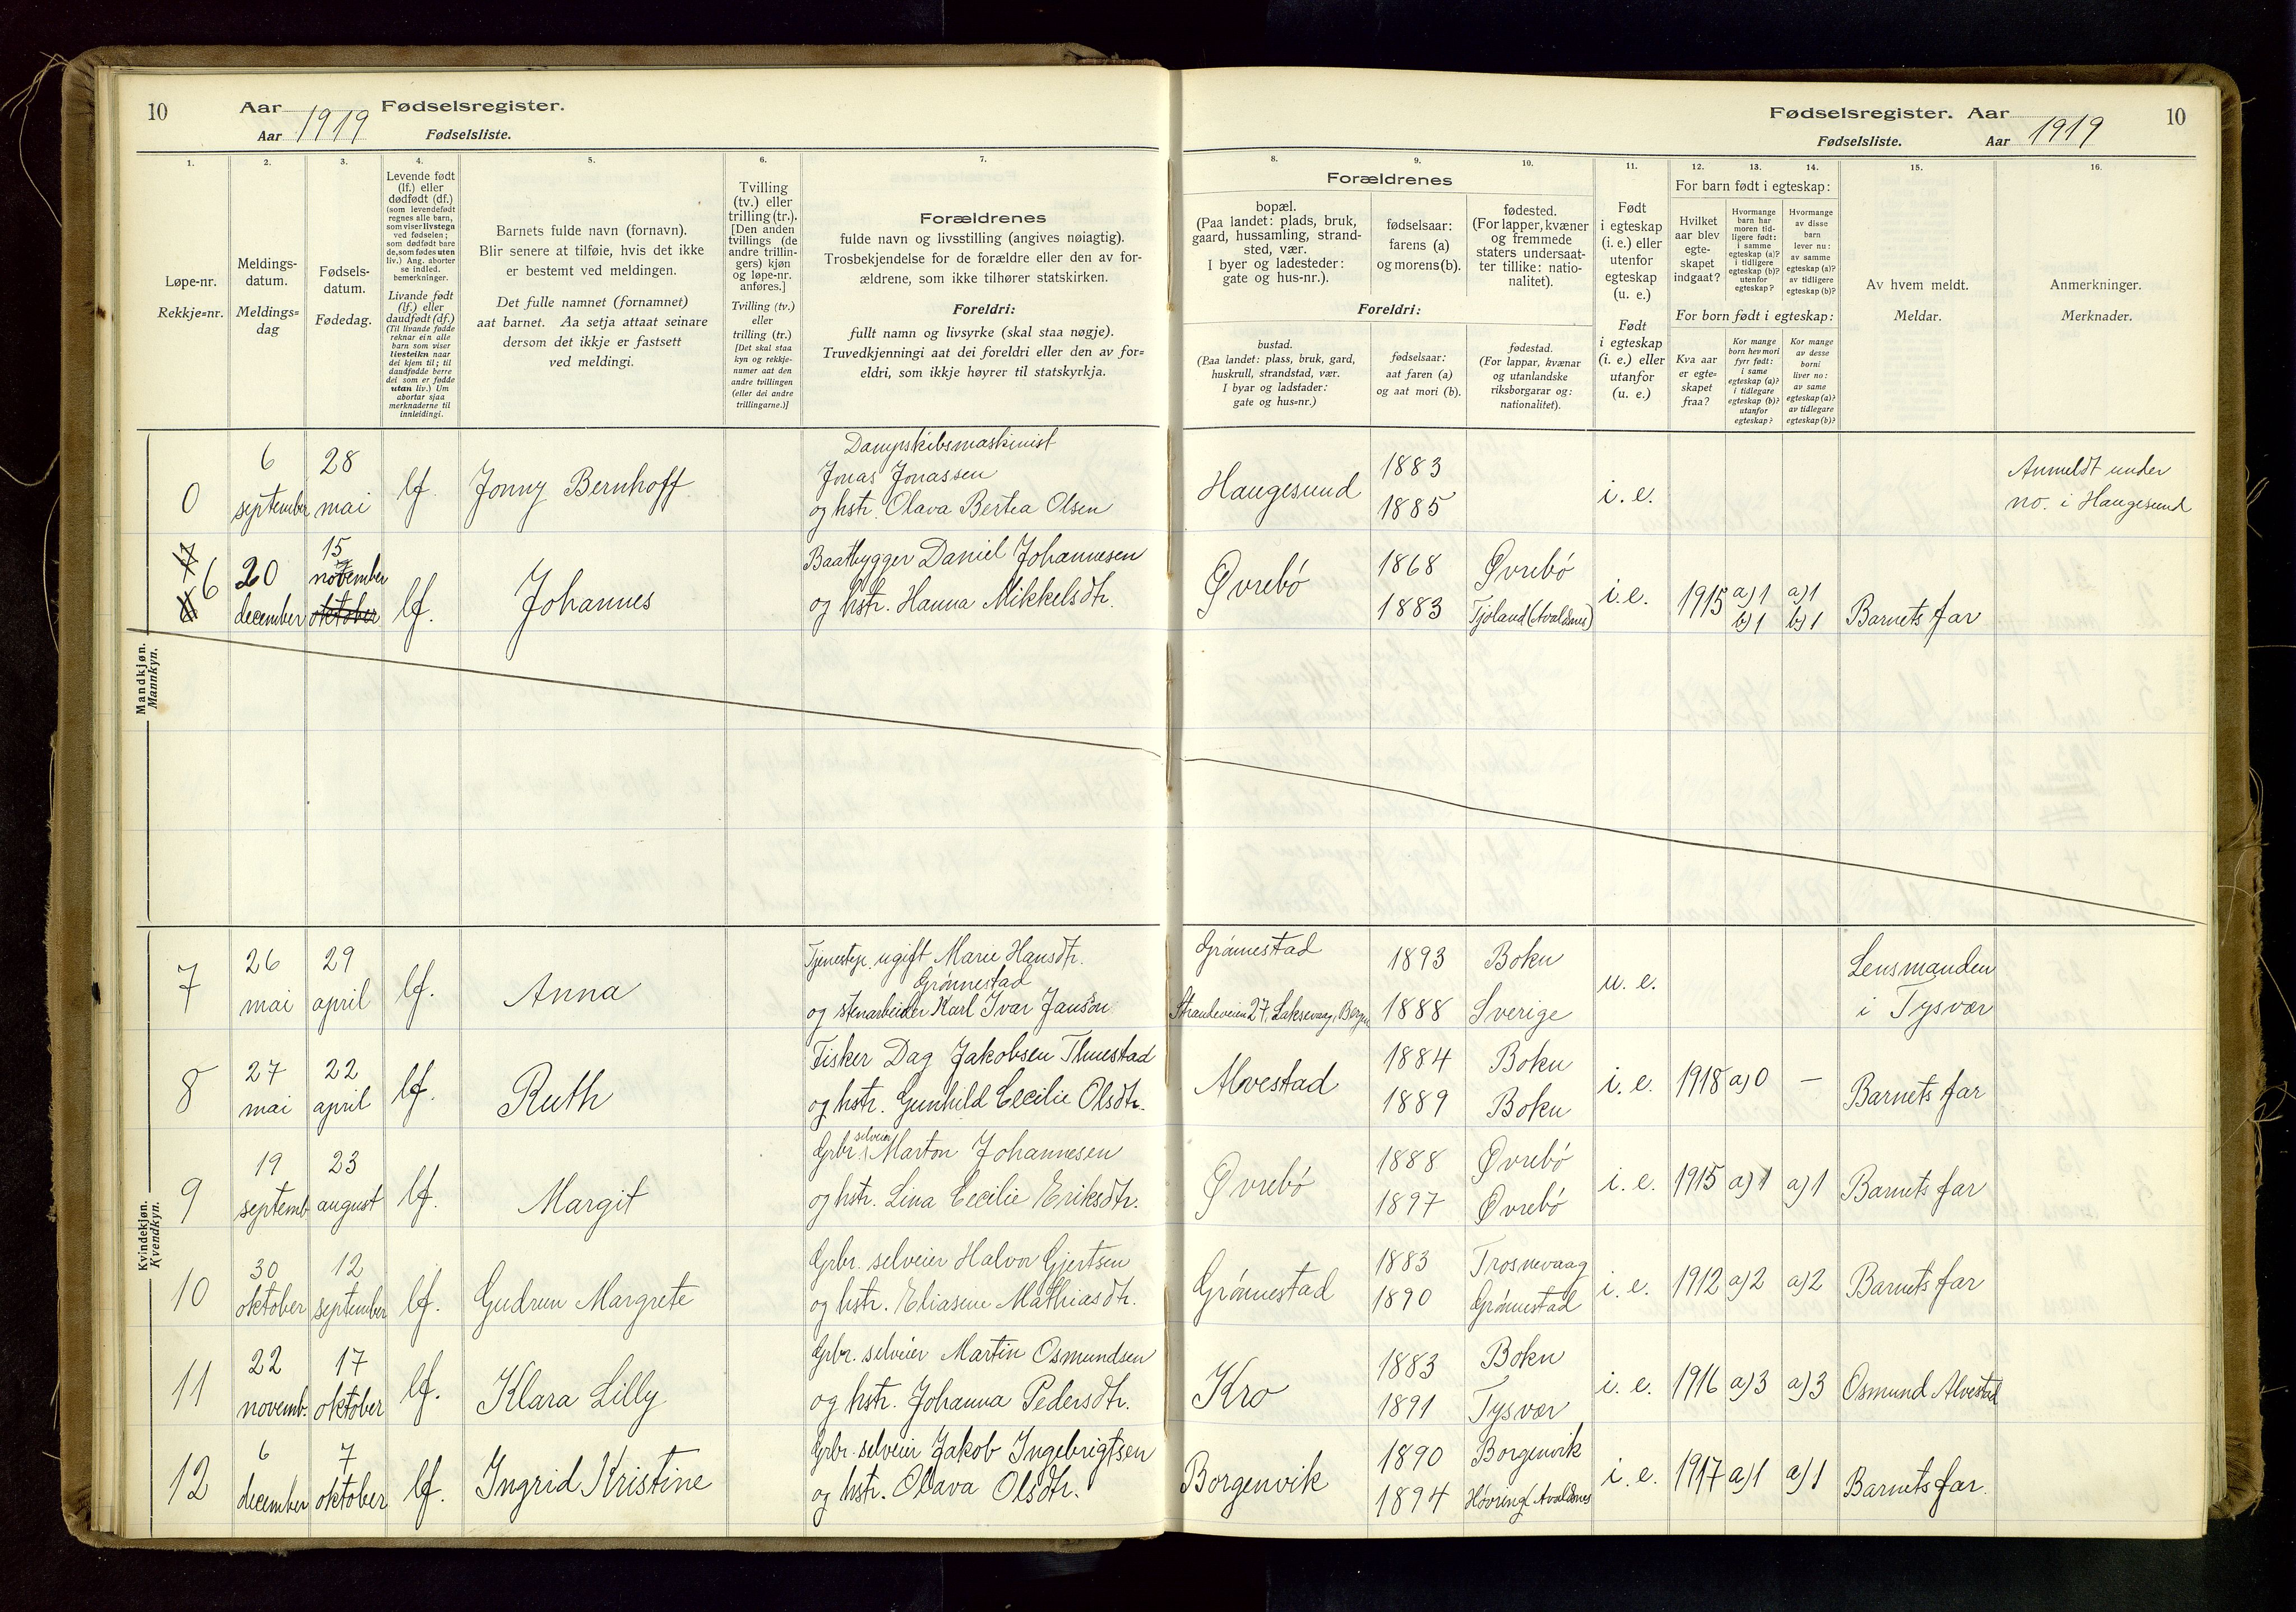 10
Aar Fødselsregister.
Aar 1919 Fødselsliste.
Fødselsregister. Aar
10
Fødselsliste. Aar 1919
1. 2. 3. 4. 5. 6. 7.
8. 9. 10. 11. 12. 13. 14. 15. 16.
Løpe-nr.
Rekkje=nr.
Meldings-
datum.
Meldings=
dag
Fødsels-
datum.
Fødedag.
Levende født
(lf.) eller
dødfødt (df.)
(som levendefødt
regnes alle barn,
som viser livstegn
ved fødselen;
som dødfødt bare
de, som fødes uten
liv.) Ang. aborter
se indled.
bemerkninger.
Livande født
(lf.) eller
daudfødt (df.)
(Til livande fødde
reknar ein alle
barn som viser
livsteikn naar
dei kjem til; til
daudfødde berre
dei som er fødde
utan liv.) Um
abortar sjaa
merknaderne til
innleidingi.
Barnets fulde navn (fornavn).
Blir senere at tilføie, hvis det ikke
er bestemt ved meldingen.
Det fulle namnet (fornamnet)
aat barnet. Aa setja attaat seinare
dersom det ikkje er fastsett
ved meldingi.
Tvilling
(tv.) eller
trilling (tr.).
[Den anden
tvillings (de
andre trillin-
gers) kjøn
og løpe-nr.
anføres.]
Tvilling (tv.)
eller
trilling (tr.)
[Det skal staa
kyn og rekkje-
numer aat den
andre tvillingen
(eller dei andre
trillingarne.)]
Forældrenes
fulde navn og livsstilling (angives nøiagtig).
Trosbekjendelse for de forældre eller den av for-
ældrene, som ikke tilhører statskirken.
Foreldri:
fullt namn og livsyrke (skal staa nøgje).
Truvedkjenningi aat dei foreldri eller den av for=
eldri, som ikkje høyrer til statskyrkja.
Forældrenes
bopæl.
(Paa landet: plads, bruk,
gaard, hussamling, strand-
sted, vær.
I byer og ladesteder:
gate og hus-nr.).
fødselsaar:
farens (a)
og morens (b).
fødested.
(For lapper, kvæner
og fremmede
staters undersaat-
ter tillike: natio-
nalitet).
Foreldri:
bustad.
(Paa landet: plass, bruk, gard,
huskrull, strandstad, vær.
I byar og ladstader:
gate og hus=nr.)
fødselsaar:
aat faren (a)
og aat mori (b).
fødestad.
(For lappar, kvænar
og utanlandske
riksborgarar og:
nationalitet).
Født
i egteskap
(i. e.) eller
utenfor
egteskap
(u. e.)
Født
i egteskap
(i. e.) eller
utanfor
(u. e.)
For barn født i egteskap:
Hvilket
aar blev
egte-
skapet
indgaat?
Hvormange
barn har
moren tid-
ligere født:
i samme
egteskap (a)?
i tidligere
egteskap (b)?
utenfor
egteskap?
Hvormange
av disse
barn
lever nu:
av samme
egteskap (a)?
av tidligere
egteskap (b)?
For born født i egteskap:
Kva aar
er egte=
skapet
fraa?
Kor mange
born hev mori
fyrr født:
i same
egteskap (a)?
i tidlegare
egteskap (b)?
utanfor
egteskap?
Kor mange
av desse
borni
liver no:
av same
egteskap (a)?
av tidlegare
egteskap (b)?
Av hvem meldt.
Meldar.
Anmerkninger.
Merknader.
Mandkjøn.
Mannkyn.
0 6 september 28 mai lf. Jonny Bernhoff
Dampskibsmaskinist
Jonas Jonassen
og hstr. Olava Bertea Olsen
Haugesund 1883 1885 i. e.
Anmeldt under
no. i Haugesund
6 20 december 15 november oktober lf. Johannes
Baatbygger Daniel Johannesen
og hstr. Hanna Mikkelsdtr.
Øvrebö 1868 Øvrebö
1883 Tjoland (Avaldsnes)
i. e. 1915 a) 1 b) 1 a) 1 b) 1 Barnets far
Kvindekjøn.
Kvendkyn.
7 26 mai 29 april lf. Anna
Tjenestep. ugift Marie Hansdtr.
Grønnestad
og stenarbeider Karl Ivar Janson
Grönnestad 1893 Bokn
Strandeveien 27, Laksevaag, Bergen 1888 Sverige
u. e.
Lensmanden
i Tysvær
8 27 mai 22 april lf. Ruth
Fisker Dag Jakobsen
og hstr. Gunhild Cecilie Olsdtr.
Alvestad 1884 Bokn
1889 Bokn
i. e. 1918 a) 0 — Barnets far
9 19 septemb. 23 august lf. Margit
Grbr. selveier Marton Johannesen
og hstr. Lina Cecilie Eriksdtr.
Øvrebö 1888 Øvrebö
1897 Øvrebö
i. e. 1915 a) 1 a) 1 Barnets far
10 30 oktober 12 september lf. Gudrun Margrete
Grbr. selveier Halvor Gjertsen
og hstr. Eliasine Mathiasdtr.
Grönnestad 1883 Trosnevaag
1890 Grönnestad
i. e. 1912 a) 2 a) 2 Barnets far
11 22 novemb. 17 oktober lf. Klara Lilly
Grbr. selveier Martin Osmundsen
og hstr. Johanna Pedersdtr.
Kro 1883 Bokn
1891 Tysvær
i. e. 1916 a) 3 a) 3 Osmund Alvestad
12 6 december 7 oktober lf. Ingrid Kristine
Grbr. selveier Jakob Ingebrigtsen
og hstr. Olava Olsdtr.
Borgenvik 1890 Borgenvik
1894 Hövring (Avaldsnes
i. e. 1917 a) 1 a) 1 Barnets far.